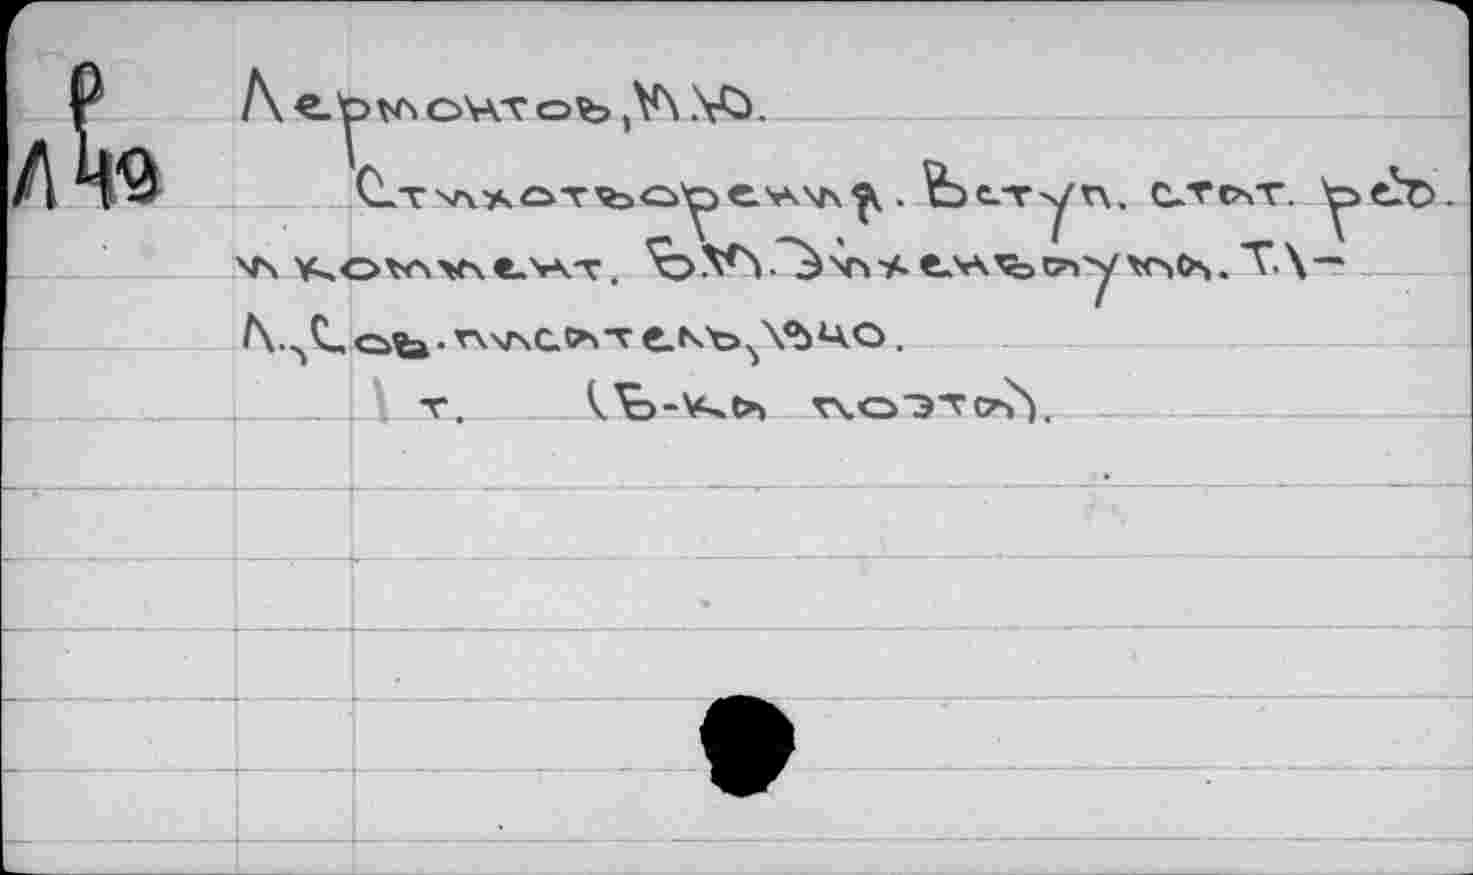 Р
Л 49
Лермонтов, М.Ю.
Стихотворения. Вступ. стат. ред.
и коммент. Б.М.Эйхенбаума. Т.1-
Л.,Сов.писатель,1940.
т. (Б-ка поэта).